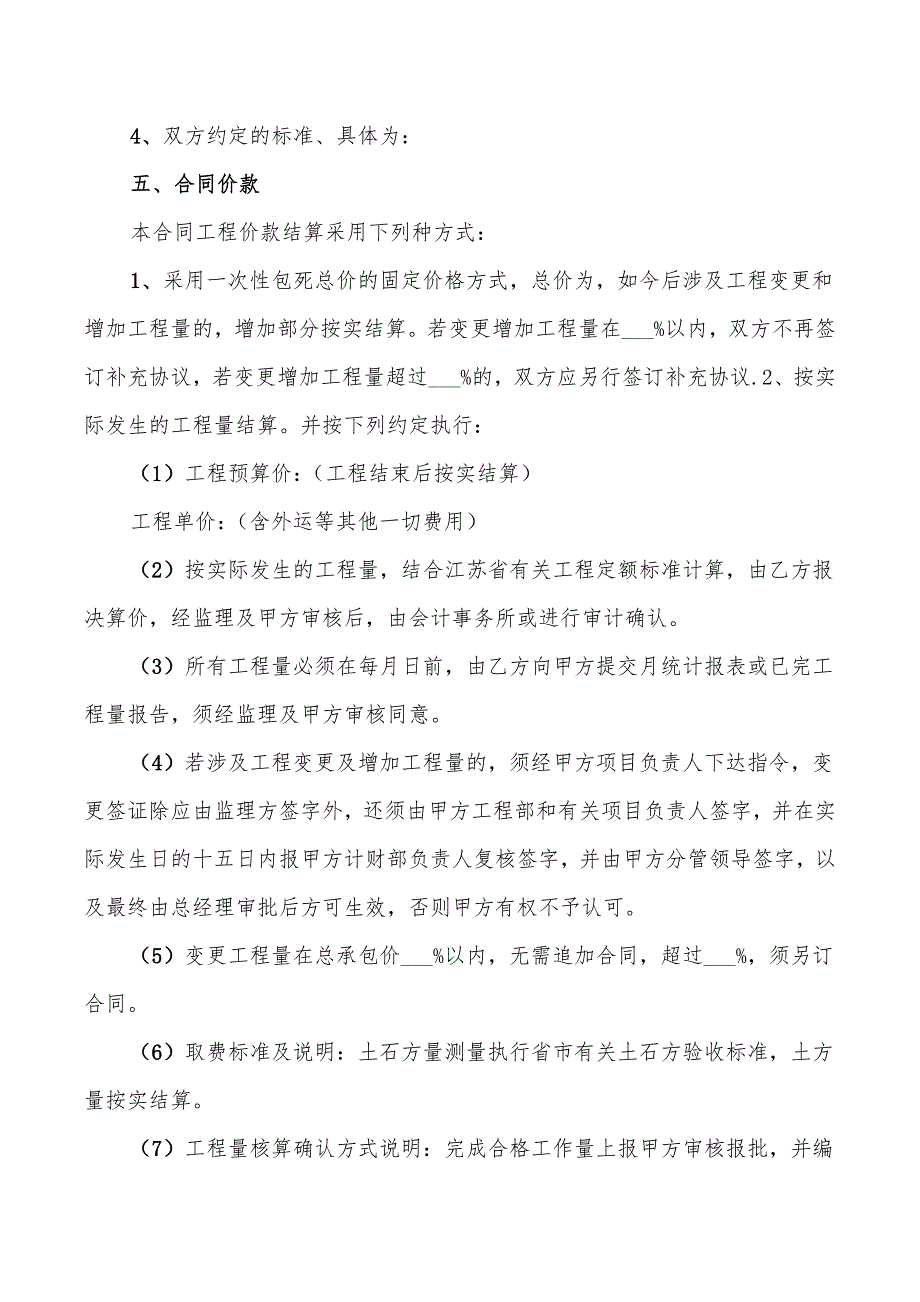 4、双方约定的标准、具体为：
五、合同价款
本合同工程价款结算采用下列种方式：
1、采用一次性包死总价的固定价格方式，总价为，如今后涉及工程变更和
增加工程量的，增加部分按实结算。若变更增加工程量在___%以内，双方不再签
订补充协议，若变更增加工程量超过___%的，双方应另行签订补充协议.2、按实
际发生的工程量结算。并按下列约定执行：
（1）工程预算价：（工程结束后按实结算）
工程单价：（含外运等其他一切费用）
（2）按实际发生的工程量，结合江苏省有关工程定额标准计算，由乙方报
决算价，经监理及甲方审核后，由会计事务所或进行审计确认。
（3）所有工程量必须在每月日前，由乙方向甲方提交月统计报表或已完工
程量报告，须经监理及甲方审核同意。
（4）若涉及工程变更及增加工程量的，须经甲方项目负责人下达指令，变
更签证除应由监理方签字外，还须由甲方工程部和有关项目负责人签字，并在实
际发生日的十五日内报甲方计财部负责人复核签字，并由甲方分管领导签字，以
及最终由总经理审批后方可生效，否则甲方有权不予认可。
（5）变更工程量在总承包价___%以内，无需追加合同，超过___%，须另订
合同。
（6）取费标准及说明：土石方量测量执行省市有关土石方验收标准，土方
量按实结算。
（7）工程量核算确认方式说明：完成合格工作量上报甲方审核报批，并编